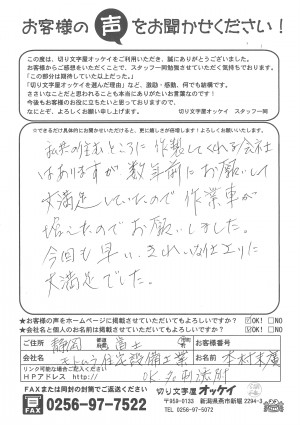 お客様の声をお聞かせください!
この度は、切り文字屋オッケイをご利用いただき、誠にありがとうございました。
お客様からご感想をいただくことで、スタッフ一同勉強させていただく気持ちでおります。
「この部分は期待していた以上だった。」
「切り文字屋オッケイを選んだ理由」など、激励・感動、何でも結構です。
ささいなことだと思われることも本当にありがたいお言葉なのです!
今後もお客様のお役に立ちたいと思っておりますので、
なにとぞ、よろしくお願い申し上げます。
切り文字屋オッケイ スタッフ一同
※できるだけ具体的にお聞かせいただけると、更に嬉しさが倍増します!よろしくお願いいたします。
私共の住むところに作製してくれる会社
はありますが数年前にお願いして
大満足していたので作業車が
増したのでお願いしました。
今回も早い、きれいな仕上りに
大満足でした。
★お客様の声をホームページに掲載させていただいてもよろしいですか? OK! □NO
★会社名と個人のお名前は掲載させていただいてもよろしいですか? OK! □NO
ご住所 静岡 富士 お客様番号
会社名 モトムラ住宅設備工業 お名前 本村末廣
HPアドレス http://
FAXまたは同封の封筒でご返送ください
FAX 0256-97-7522
切り文字屋 オッケイ
〒959-0133 新潟県燕市新堀 2294-3
TEL 0256-97-5072